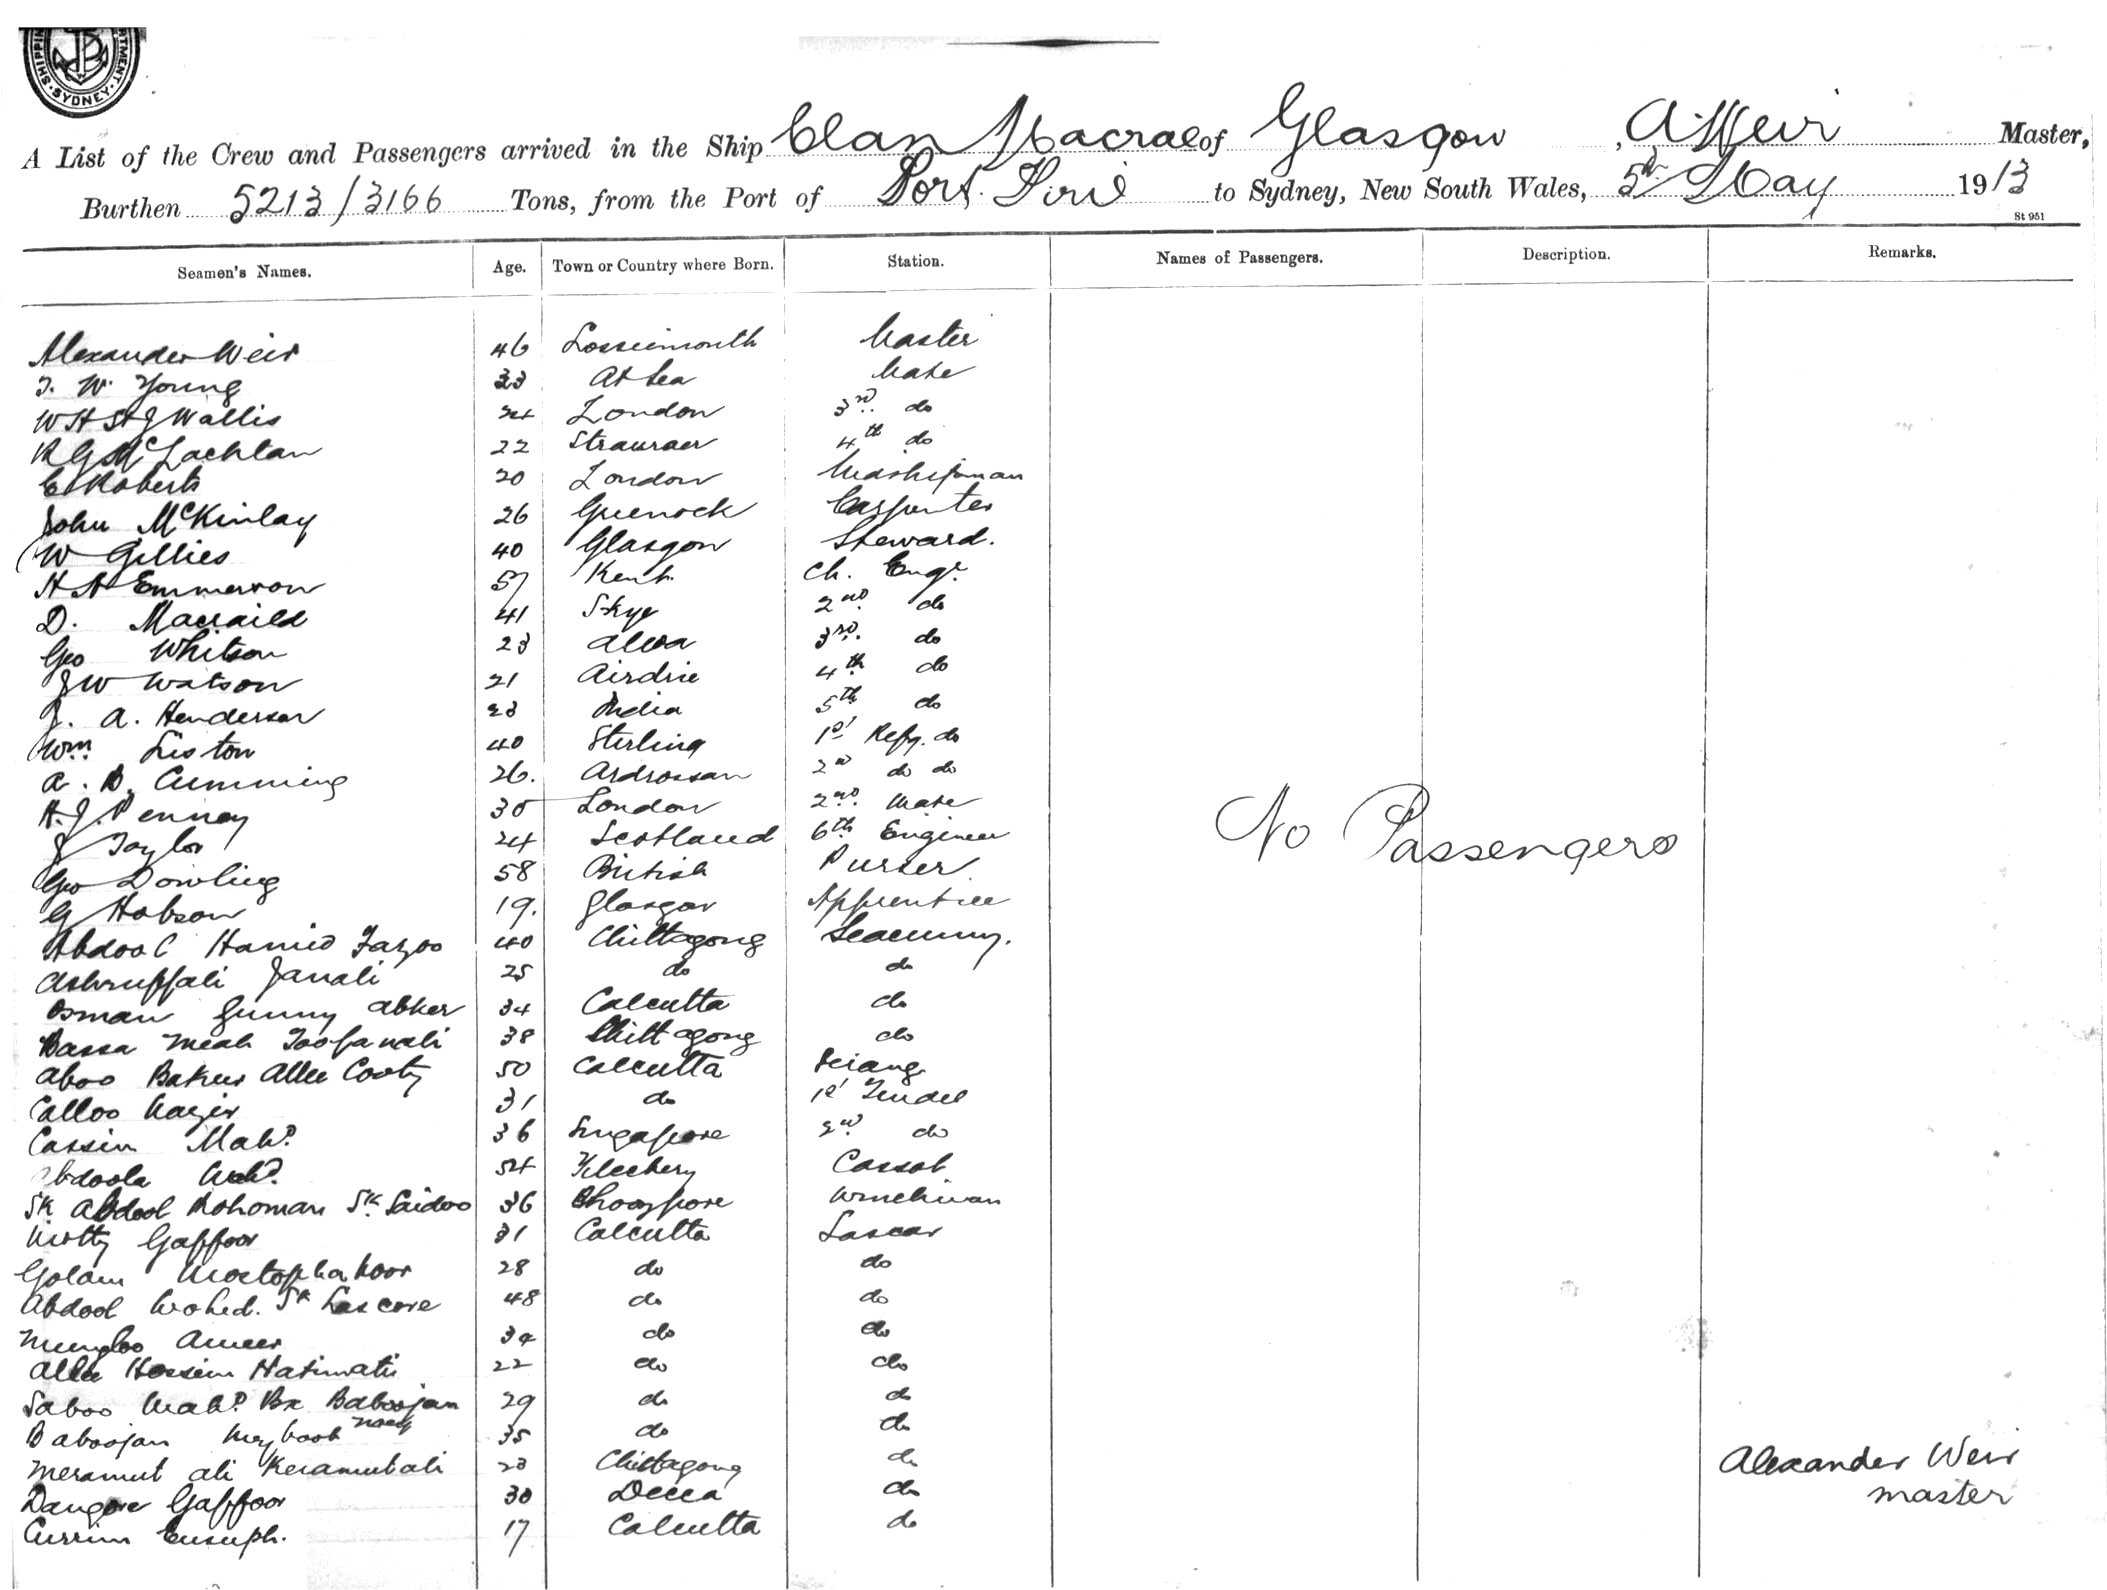 SHIPPING DEPARTMENT. SYDNEY.
A List of the Crew and Passengers arrived in the Ship Clan Macrae of Glasgow, A Weir Master,
Burthen 5213/3166 Tons, from the Port of Port Pirie to Sydney, New South Wales, 5th May 1913
St 951
Seamen's Names. Age. Town or Country where Born. Station. Names of Passengers. Description. Remarks.
Alexander Weir 46 Lossiemouth Master
T. W. Young 33 At Sea Mate
W H St J Wallis 24 London 3rd do
R G McLachlan 22 Stranraer 4th do
E Roberts 20 London Midshipman
John McKinlay 26 Greenock Carpenter
W Gillies 40 Glasgow Steward.
H A Emmerson 57 Kent Ch. Engr
D. Macraild 41 Skye 2nd do
Geo Whitson 23 Alloa 3rd do
J W Watson 21 Airdrie 4th do
J. A. Henderson 23 India 5th do
Wm. Liston 40 Stirling 1st Refg. do
A. B. Cumming 26. Ardrossan 2nd do do
H. J. Penney 35 London 2nd Mate
J Taylor 24 Scotland 6th Engineer
Geo Dowling 58 British Purser
G Hobson 19. Glasgow Apprentice
Abdool Hamid Fazoo 40 Chittagong Seacunny.
Ashruffali Janali 25 do do
Osman Gunny Akber 34 Calcutta do
Bassa Meah Toofanali 38 Chittagong do
Aboo Baker Allee Cooty 50 Calcutta Serang
Calloo Nazir 31 do 1st Tindel
Cassim Mahd. 36 Singapore 2nd do
Abdoola Mahd. 54 Cassab
Sk Abdool Rohoman Sk Saidoo 36 Winchman
Motty Gaffoor 31 Calcutta Lascar
Golam Mostopha Noor 28 do do
Abdool Wohed. Sk Lascore 48 do do
Mungloo Ameer 34 do do
Allee Hossein Hatimali 22 do do
Saboo Mahd. Bx Baboojan 29 do do
Baboojan 35 do do
Meramut Ali Keramutali 23 Chittagong do
Dangore Gaffoor 30 Decca do
Currim Eusuph. 17 Calcutta do
No Passengers
Alexander Weir
Master